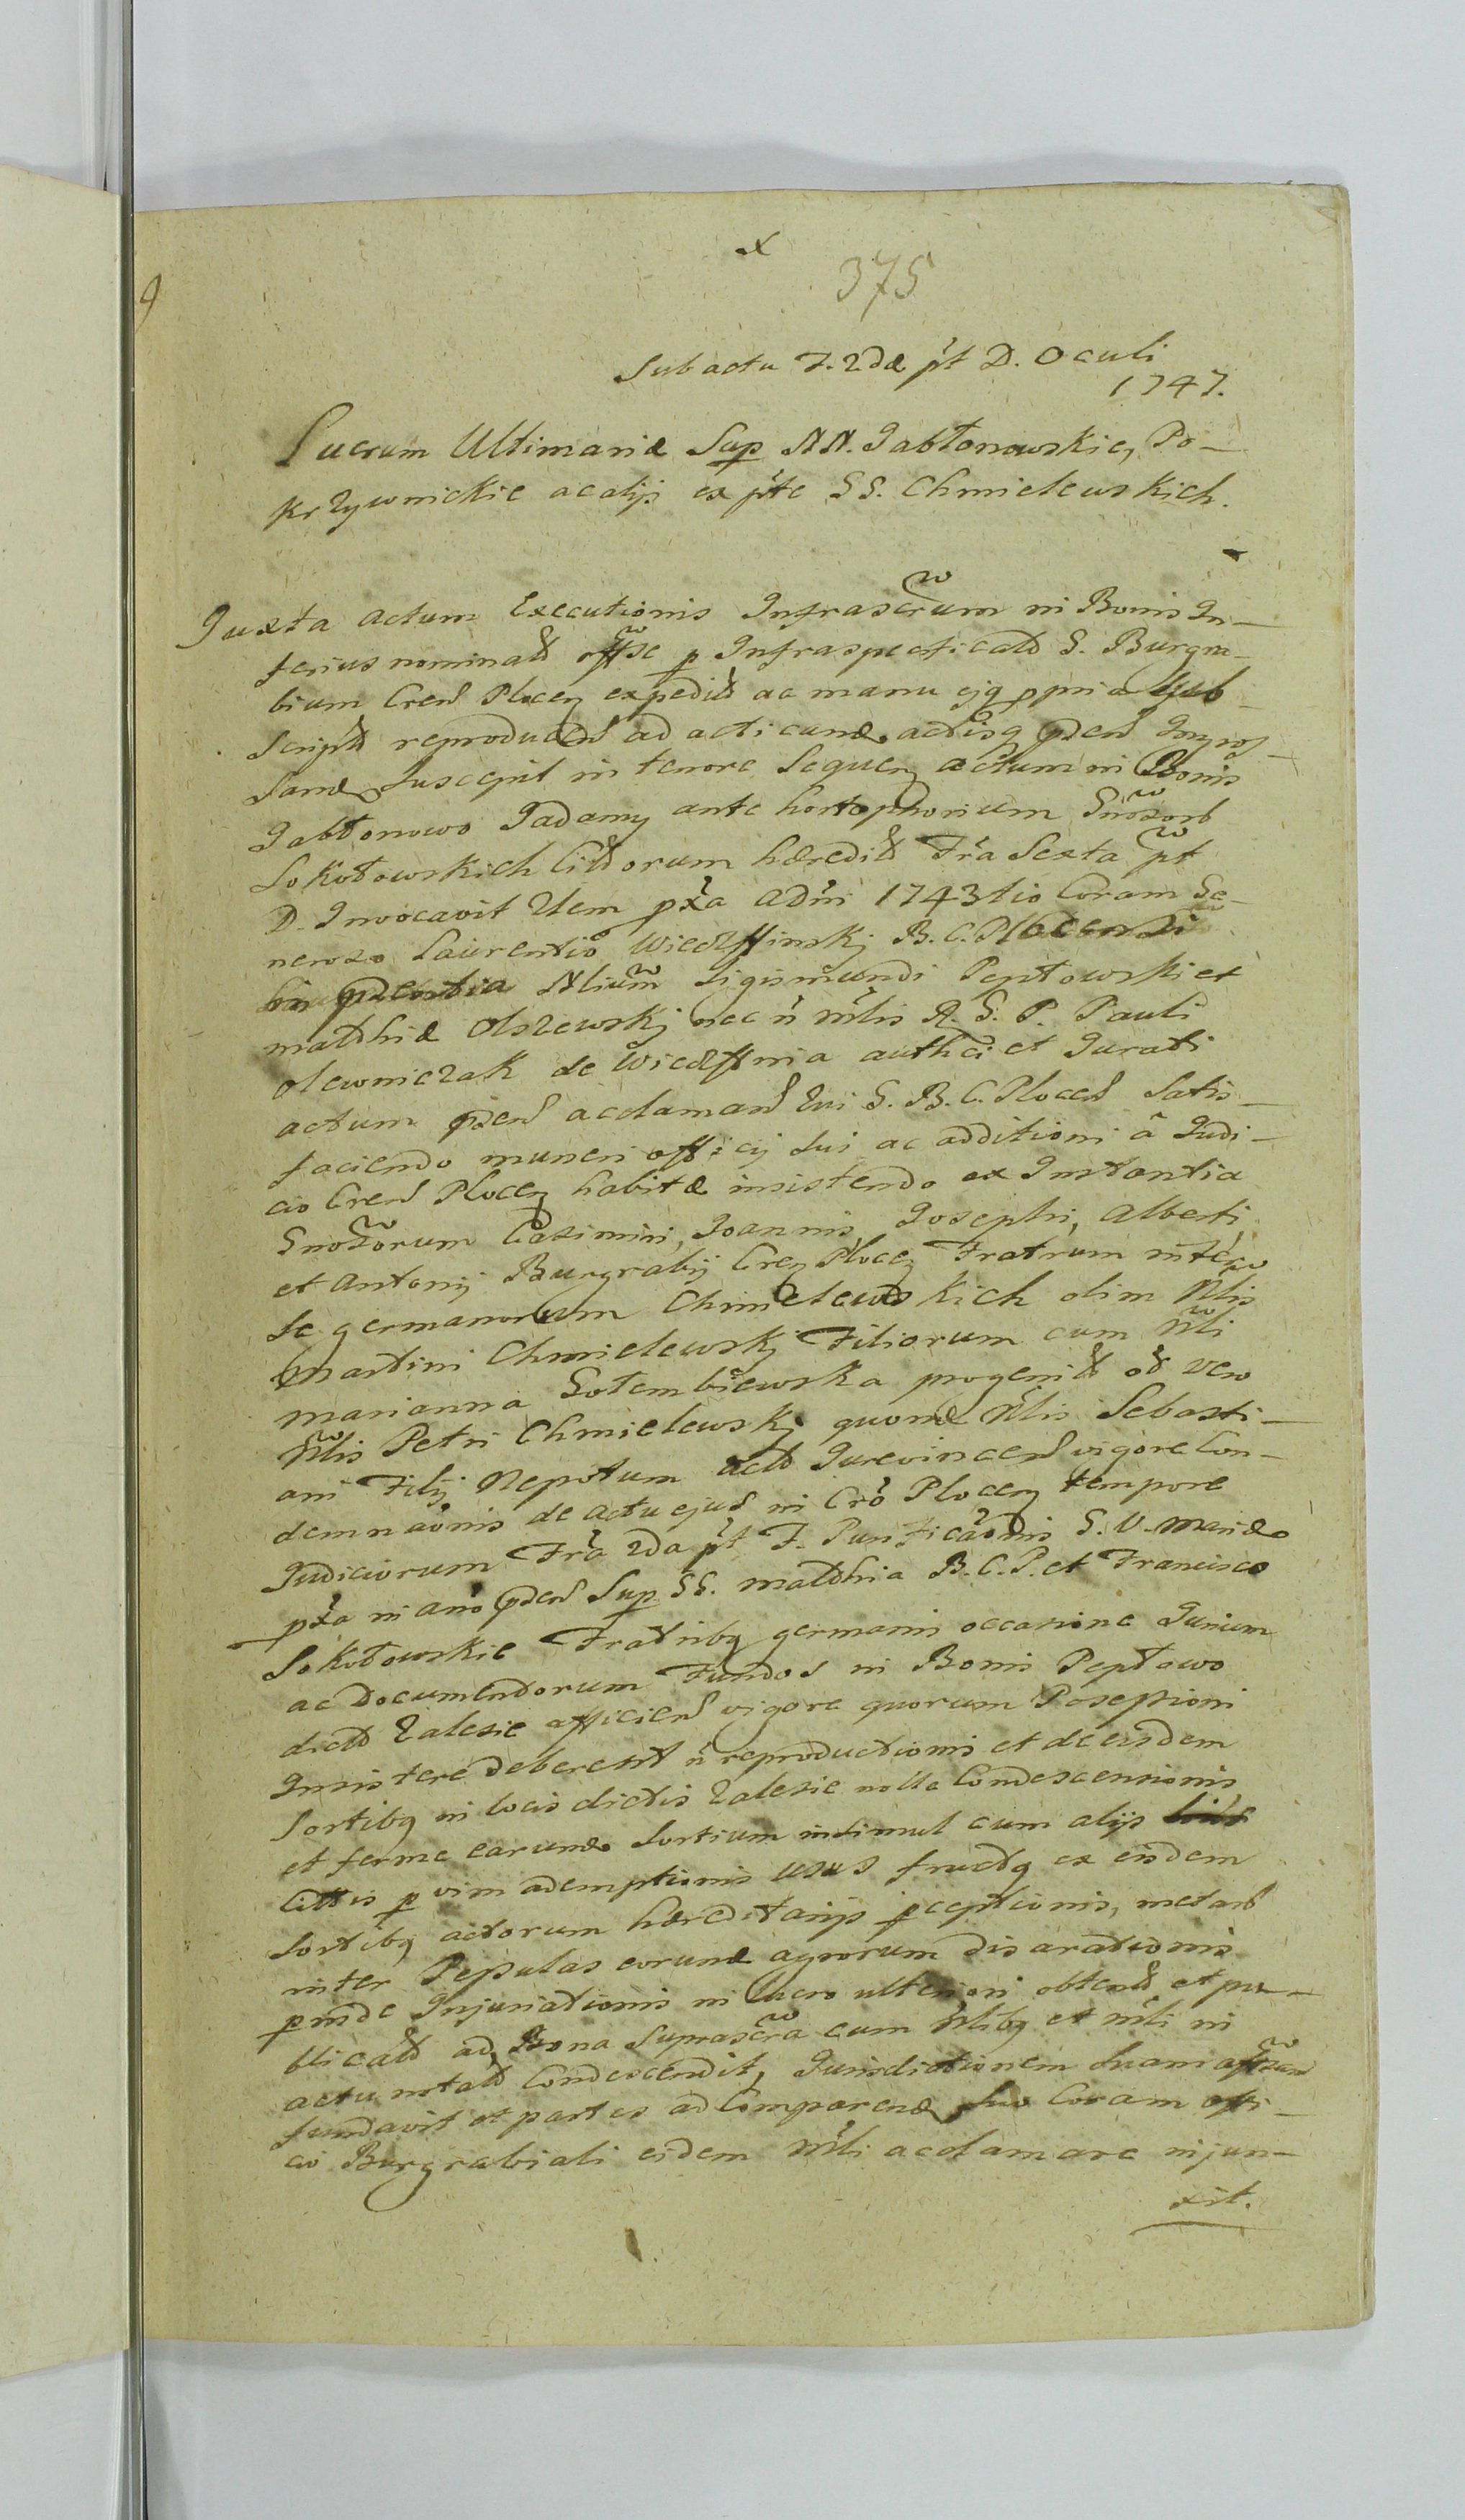 x
375
Sub actu F. 2dæ pt D. Oculi
1747.
Lucrum Ultimariæ Sup NN. Jabłonowskie, Po-
krzywnickie ac alijs ex pte GG. Chmielewskich.
Juxta actum Executionis Infrascrum in Bonis In-
ferius nominatt offse p Infraspecificatt G. Burgra-
bium Cren Plocen expeditt ac manu ejq ppria Sub-
Scriptt reproducen ad acticand. actisq pden Ingros-
sand Suscepit in tenore Sequen actum in Bonis
Jabłonowo Jadamy ante hortophorium Gnosorb
Sokołowskich Cittorum hæreditt Fra Sexta pt
D. Invocavit Item pxa Adni 1743tio Coram Ge-
neroso Laurentio B. C. Plocensi
in pdentia Nlium Sigismundi Peptowski et
matthiæ Olszewskj nec n mlis R. G. P. Pauli
Olewniczak de authci et Jurati
actum pden acclaman Qui G. B. C. Plocen Satis-
faciendo muneri officij Sui ac additioni â Judi-
cio Cren Plocen habitæ insistendo ex Instantia
Gnosorum Casimiri, Joannis, Josephi, Alberti
et Antonij Burgrabij Cren Plocen Fratrum inter
Se germanorum Chmielewskich olim Nlis
Martini Chmielewskj Filiorum cum Nli
Marianna Gołembiewska progenitt ott vero
Nlis Petri Chmielewskj quond Nlis Sebasti-
ani Filij Nepotum actt Jurevincen vigore Con-
demnaonis de actu ejus in Cro Plocen tempore
Judiciorum Fra 2da pt F. Purificaonis S. V. Mariæ
pxa in ano pden Sup GG. Matthia B. C. P. et Francisco
Sokołowskie Fratribq germanis occasione Jurium
ac Documentorum Fundos in Bonis Peptowo
dictt Zalesie afficien vigore quorum Possessioni
Insistere deberent n reproductionis et de eisdem
Sortibq in locis dictis Zalesie nolle Condescensionis
et ferme earund. Sortium insimul cum alijs
Cittis p vim ademptionis usus fructq ex eisdem
Sortibq actorum hæreditarijs pceptionis, metarb
inter eorund agrorum disarationis
pinde Injuriationis in lucro ulteriori obtentt et pu-
blicatt ad Bona Suprascra cum Nlibq et mli in
actu notatt Condescendit, Jurisdictionem Suam offsam
fundavit et partes ad Comparend. Suo Coram offi-
cio Burgrabiali eidem mli acclamare injun-
xit.